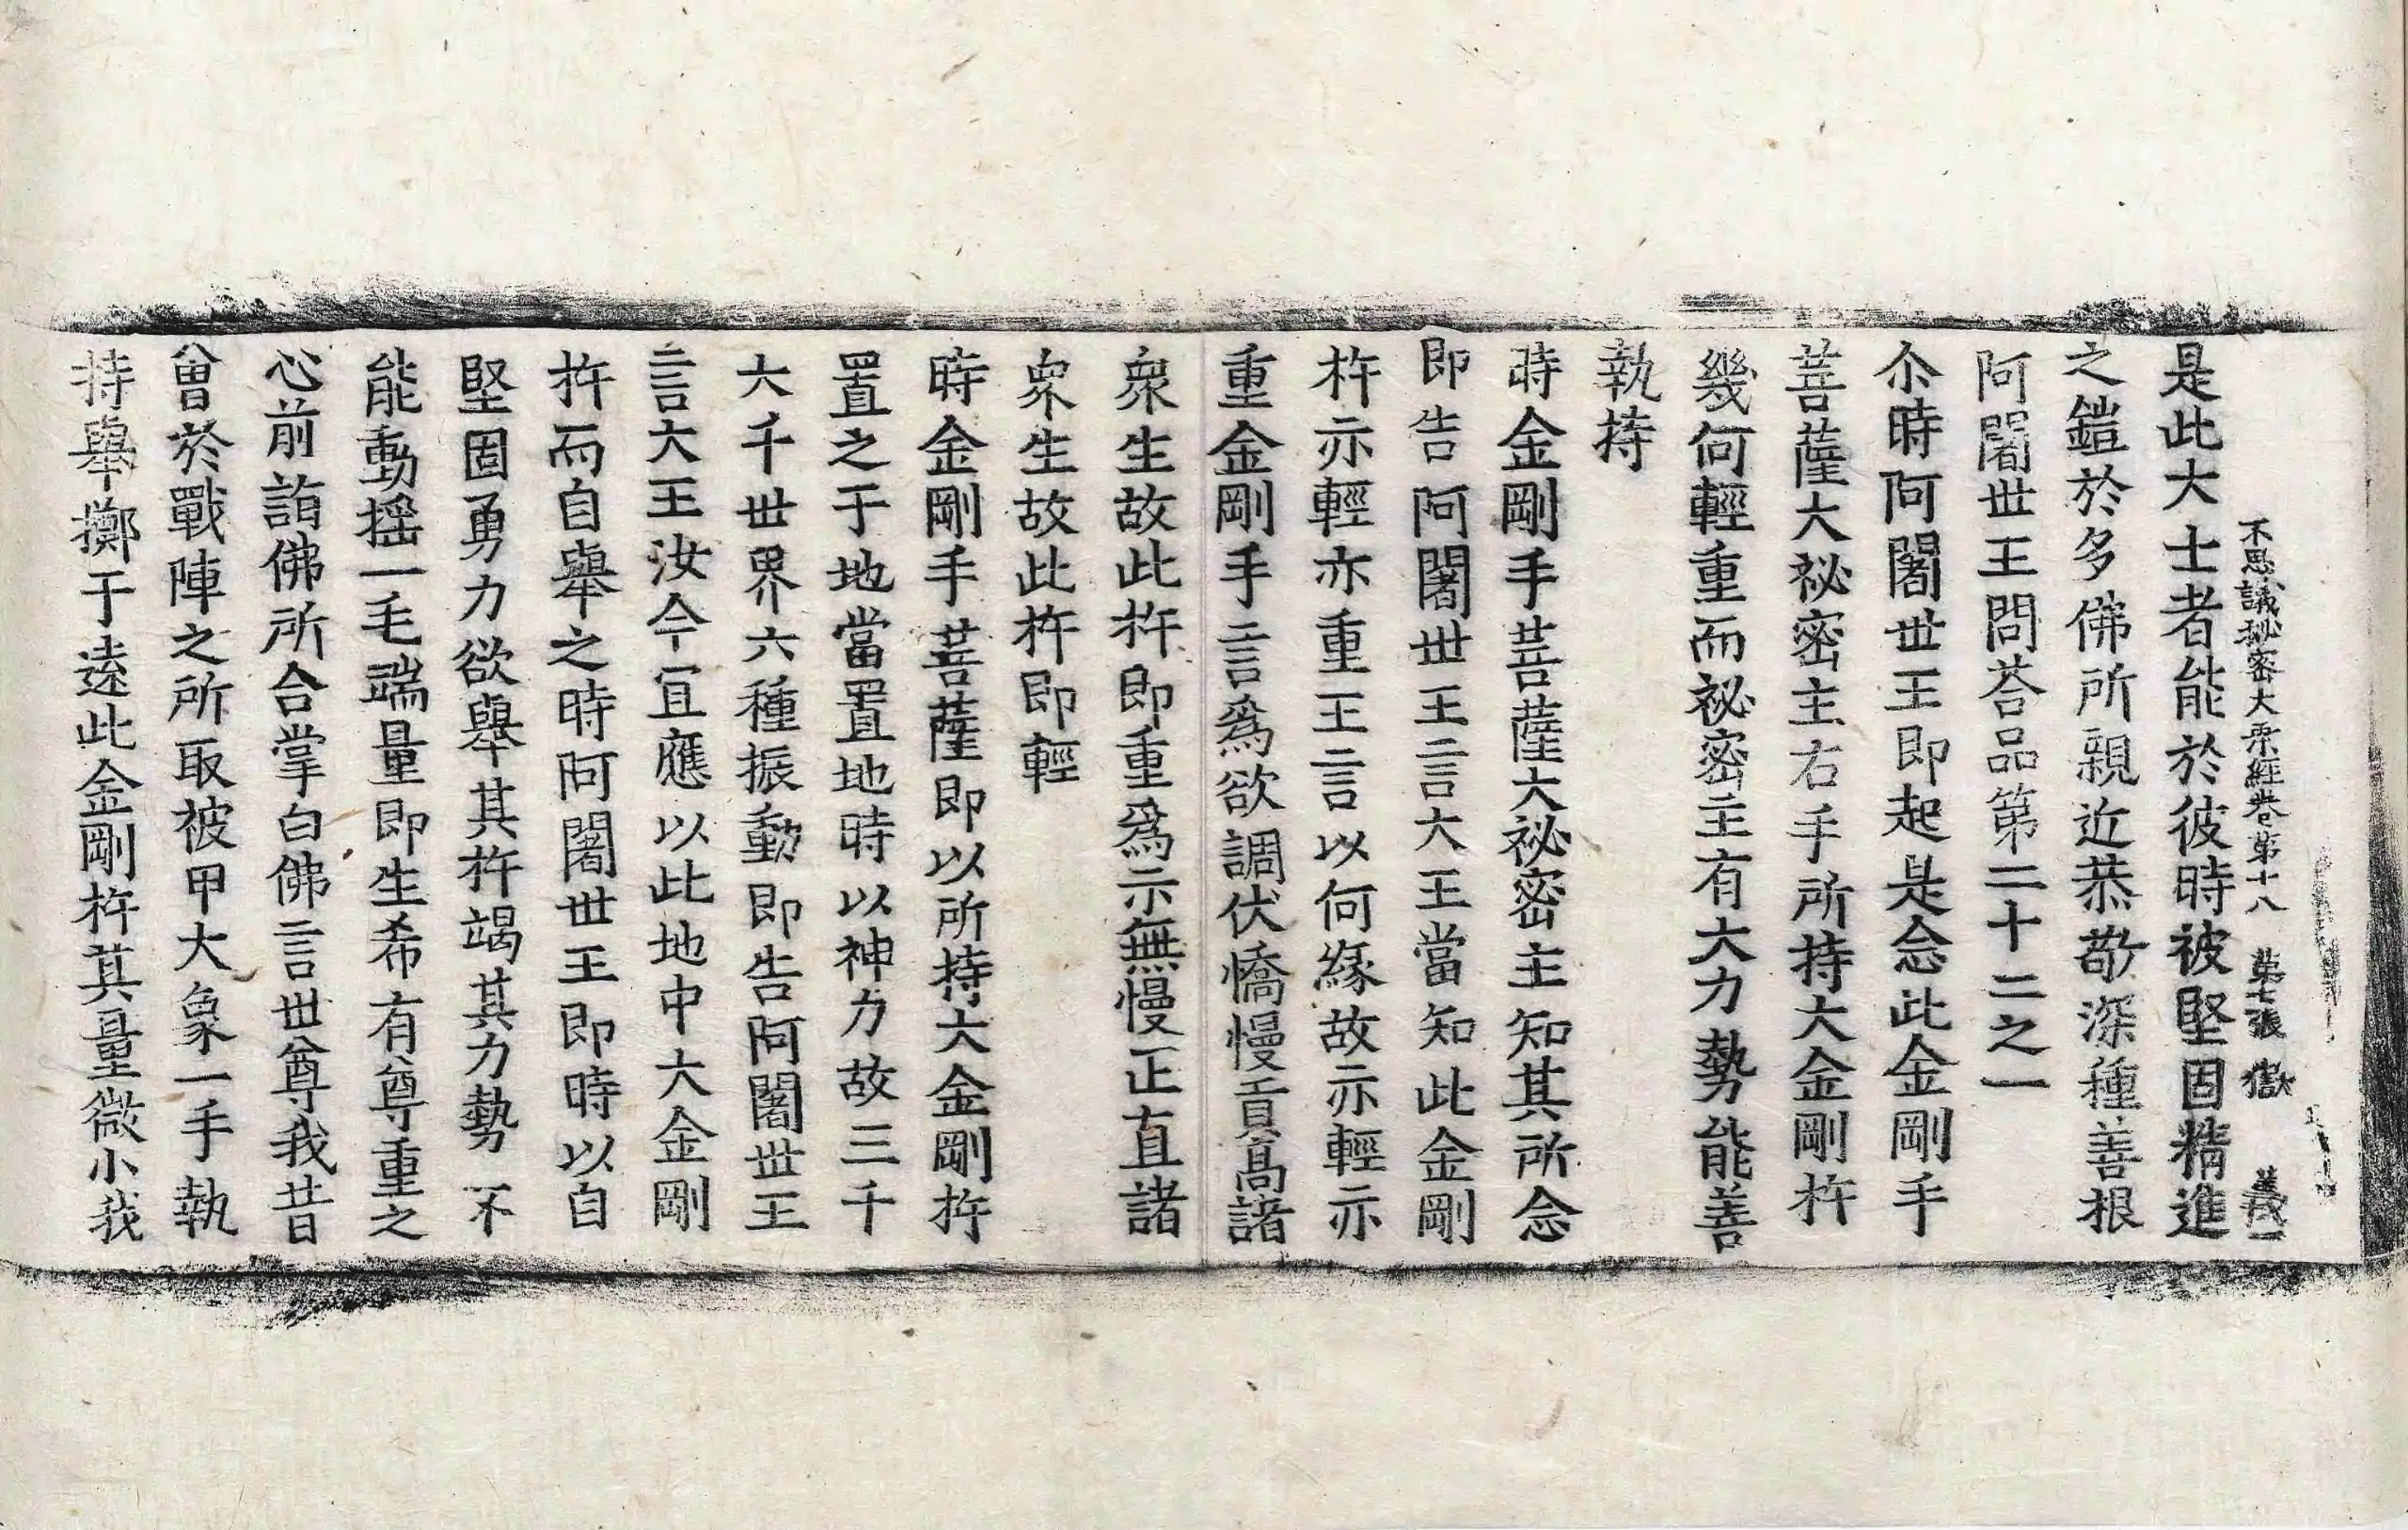 不思議秘密大乗経巻第十八 第七張 獄
是此大士者能於彼時被堅固精進
之鎧於多佛所親近恭敬深種善根
阿闍世王問荅品第二十二之一
尒時阿闍世王即起是念此金剛手
菩薩大祕密主右手所持大金剛杵
幾何輕重而祕密主有大力勢能善
執持
時金剛手菩薩大祕密主知其所念
即告阿闍世王言大王當知此金剛
杵亦輕亦重王言以何緣故亦輕亦
重金剛手言爲欲調伏憍慢貢高諸
衆生故此杵即重爲示無慢正直諸
衆生故此杵即輕
時金剛手菩薩即以所持大金剛杵
置之于地當置地時以神力故三千
大千世界六種振動即告阿闍世王
言大王汝今宜應以此地中大金剛
杵而自舉之時阿闍世王即時以自
堅固勇力欲舉其杵竭其力勢不
能動摇一毛端量即生希有尊重之
心前詣佛所合掌白佛言世尊我昔
曾於戰陣之所取被甲大象一手執
持舉擲于遠此金剛杵其量微小我